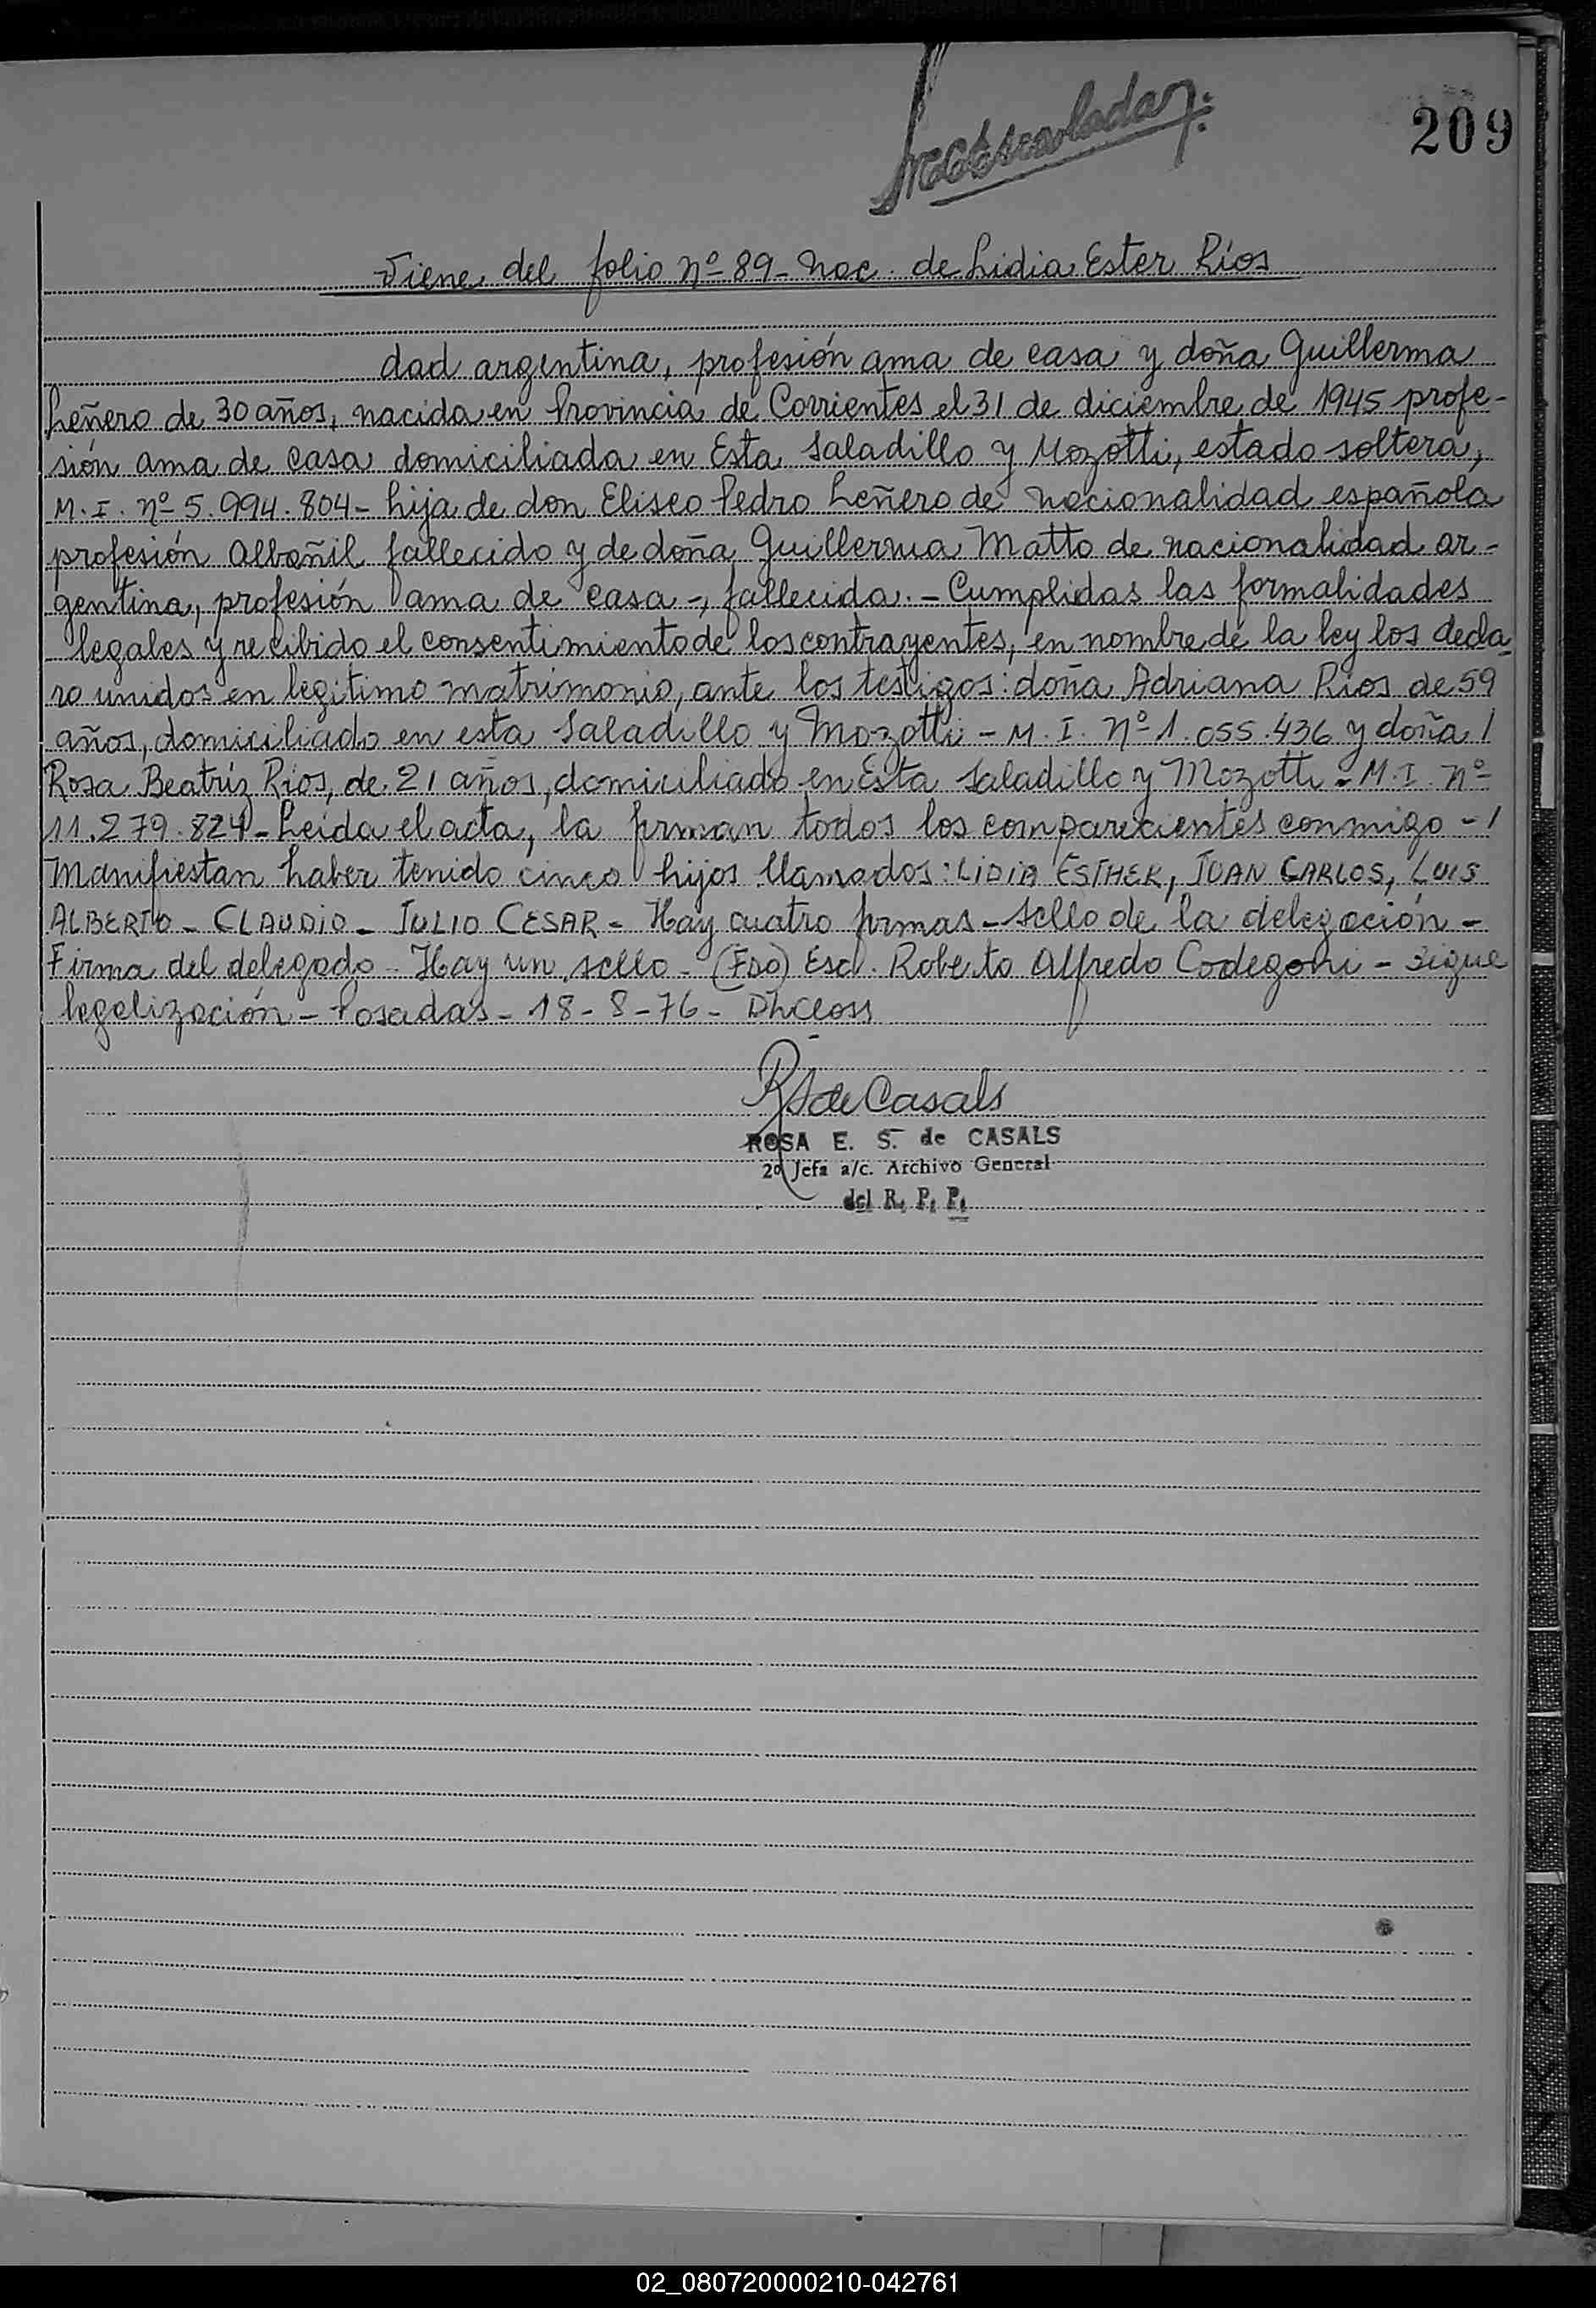 209
Viene del folio nº 89 - Nac. de Lidia Ester Ríos
dad argentina, profesión ama de casa y doña Guillerma
Leñero de 30 años, nacida en Provincia de Corrientes el 31 de diciembre de 1945 profe-
sión ama de casa domiciliada en Esta Saladillo y Mozotti, estado soltera,
M. I. nº 5.994.804 - hija de don Eliseo Pedro Leñero de nacionalidad española
profesión Albañil fallecido y de doña Guillerma Matto de nacionalidad ar-
gentina, profesión ama de casa -, fallecida. - Cumplidas las formalidades
legales y recibido el consentimiento de los contrayentes, en nombre de la ley los decla
ro unidos en legitimo matrimonio, ante los testigos: doña Adriana Rios de 59
años, domiciliado en esta Saladillo y Mozotti - M. I. Nº 1.055.436 y doña /
Rosa Beatríz Rios, de 21 años, domiciliado en Esta Saladillo y Mozotti - M. I. nº
11.279.824 - Leida el acta, la firman todos los comparecientes conmigo - /
Manifiestan haber tenido cinco hijos llamados: LIDIA ESTHER, JUAN CARLOS, LUIS
ALBERTO - CLAUDIO - JULIO CESAR - Hay cuatro firmas - Sello de la delegación -
Firma del delegado - Hay un sello - (Fdo) Esd. Roberto Alfredo Codegoni - Sigue
legalización - Posadas - 18 - 8 - 76 -
RS de Casals
ROSA E. S. de CASALS
2º Jefa a/c. Archivo General
del R. P. P.
02_080720000210-042761